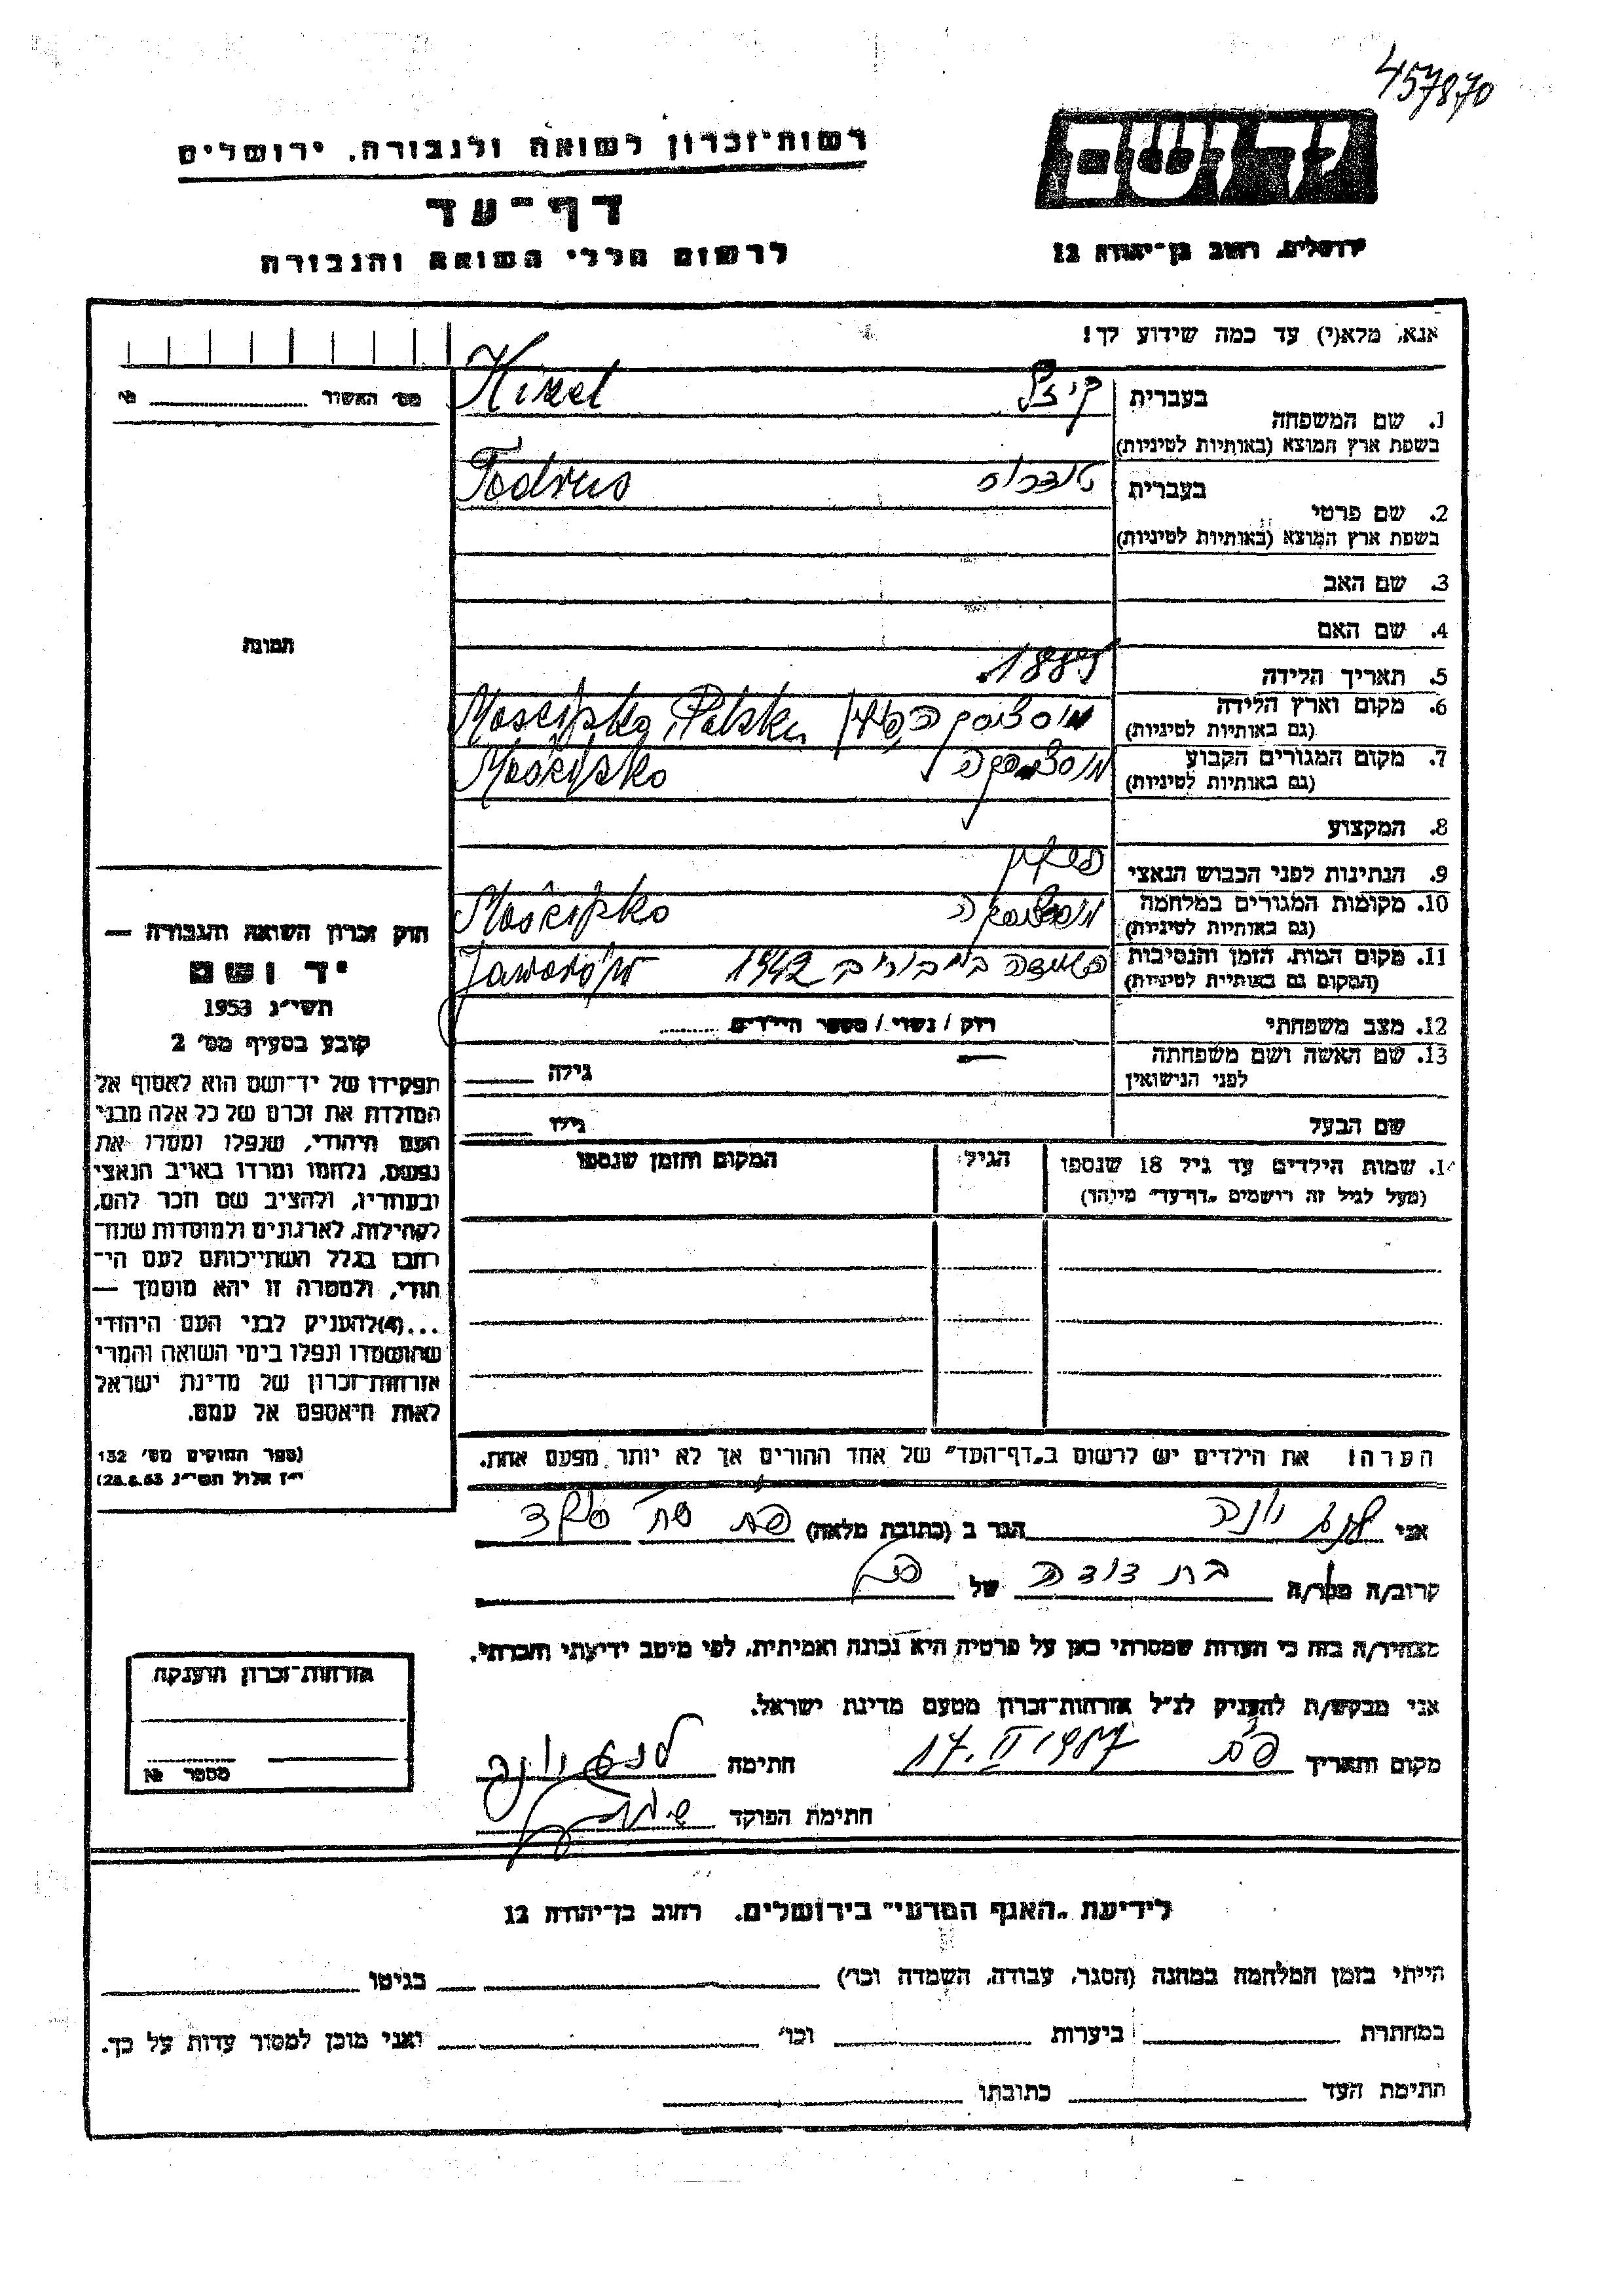 457870
יד ושם
רשות־זכרון לשואה ולגבורה, ירושלים
דף־עד
לרשום חללי השואה והגבורה
ירושלים, רחוב בן־יהודה 12
אנא, מלא(י) עד כמה שידוע לך!
מס׳ האשור № 
1. שם המשפחה בעברית קיזל Kizel
בשפת ארץ המוצא (באותיות לטיניות)
2. שם פרטי בעברית טודרוס Todrus
בשפת ארץ המוצא (באותיות לטיניות)
3. שם האב
4. שם האם
תמונה
5. תאריך הלידה 1887
6. מקום וארץ הלידה (גם באותיות לטיניות) Mościska, Polska
7. מקום המגורים הקבוע (גם באותיות לטיניות) Mościska
8. המקצוע
9. הנתינות לפני הכבוש הנאצי
10. מקומות המגורים במלחמה (גם באותיות לטיניות) Mościska
11. מקום המות, הזמן והנסיבות (המקום גם באותיות לטיניות) 1942 Jaworów
12. מצב משפחתי רווק / נשוי / מספר הילדים
13. שם האשה ושם משפחתה לפני הנישואין גילה
שם הבעל גילו
שמות הילדים עד גיל 18 שנספו (מעל לגיל זה רושמים "דף־עד" מיוחד) הגיל המקום והזמן שנספו
הערה! את הילדים יש לרשום ב"דף־העד" של אחד ההורים אך לא יותר מפעם אחת.
חוק זכרון השואה והגבורה —
יד ושם
תשי״ג 1953
קובע בסעיף מס׳ 2
תפקידו של יד־ושם הוא לאסוף אל
המולדת את זכרם של כל אלה מבני
העם היהודי, שנפלו ומסרו את
נפשם, נלחמו ומרדו באויב הנאצי
ובעוזריו, ולהציב שם וזכר להם,
לקהילות, לארגונים ולמוסדות שנח־
רבו בגלל השתייכותם לעם הי־
הודי, ולמטרה זו יהא מוסמך —
...(4)להעניק לבני העם היהודי
שהושמדו ונפלו בימי השואה והמרי
אזרחות־זכרון של מדינת ישראל
לאות היאספם אל עמם.
(ספר החוקים מס׳ 132
י״ז אלול תשי״ג 28.8.53)
אני יונה הגר ב (כתובת מלאה)
קרוב/ה מכר/ה בת דודה של
מצהיר/ה בזה כי העדות שמסרתי כאן על פרטיה היא נכונה ואמיתית, לפי מיטב ידיעתי והכרתי.
אני מבקש/ת להעניק לנ״ל אזרחות־זכרון מטעם מדינת ישראל.
מקום ותאריך 17.II חתימה
חתימת הפוקד
אזרחות־זכרון הוענקה
מספר №
לידיעת "האגף המדעי" בירושלים, רחוב בן־יהודה 12
הייתי בזמן המלחמה במחנה (הסגר, עבודה, השמדה וכו׳) בגיטו
במחתרת ביערות וכו׳ ואני מוכן למסור עדות על כך.
חתימת העד כתובתו